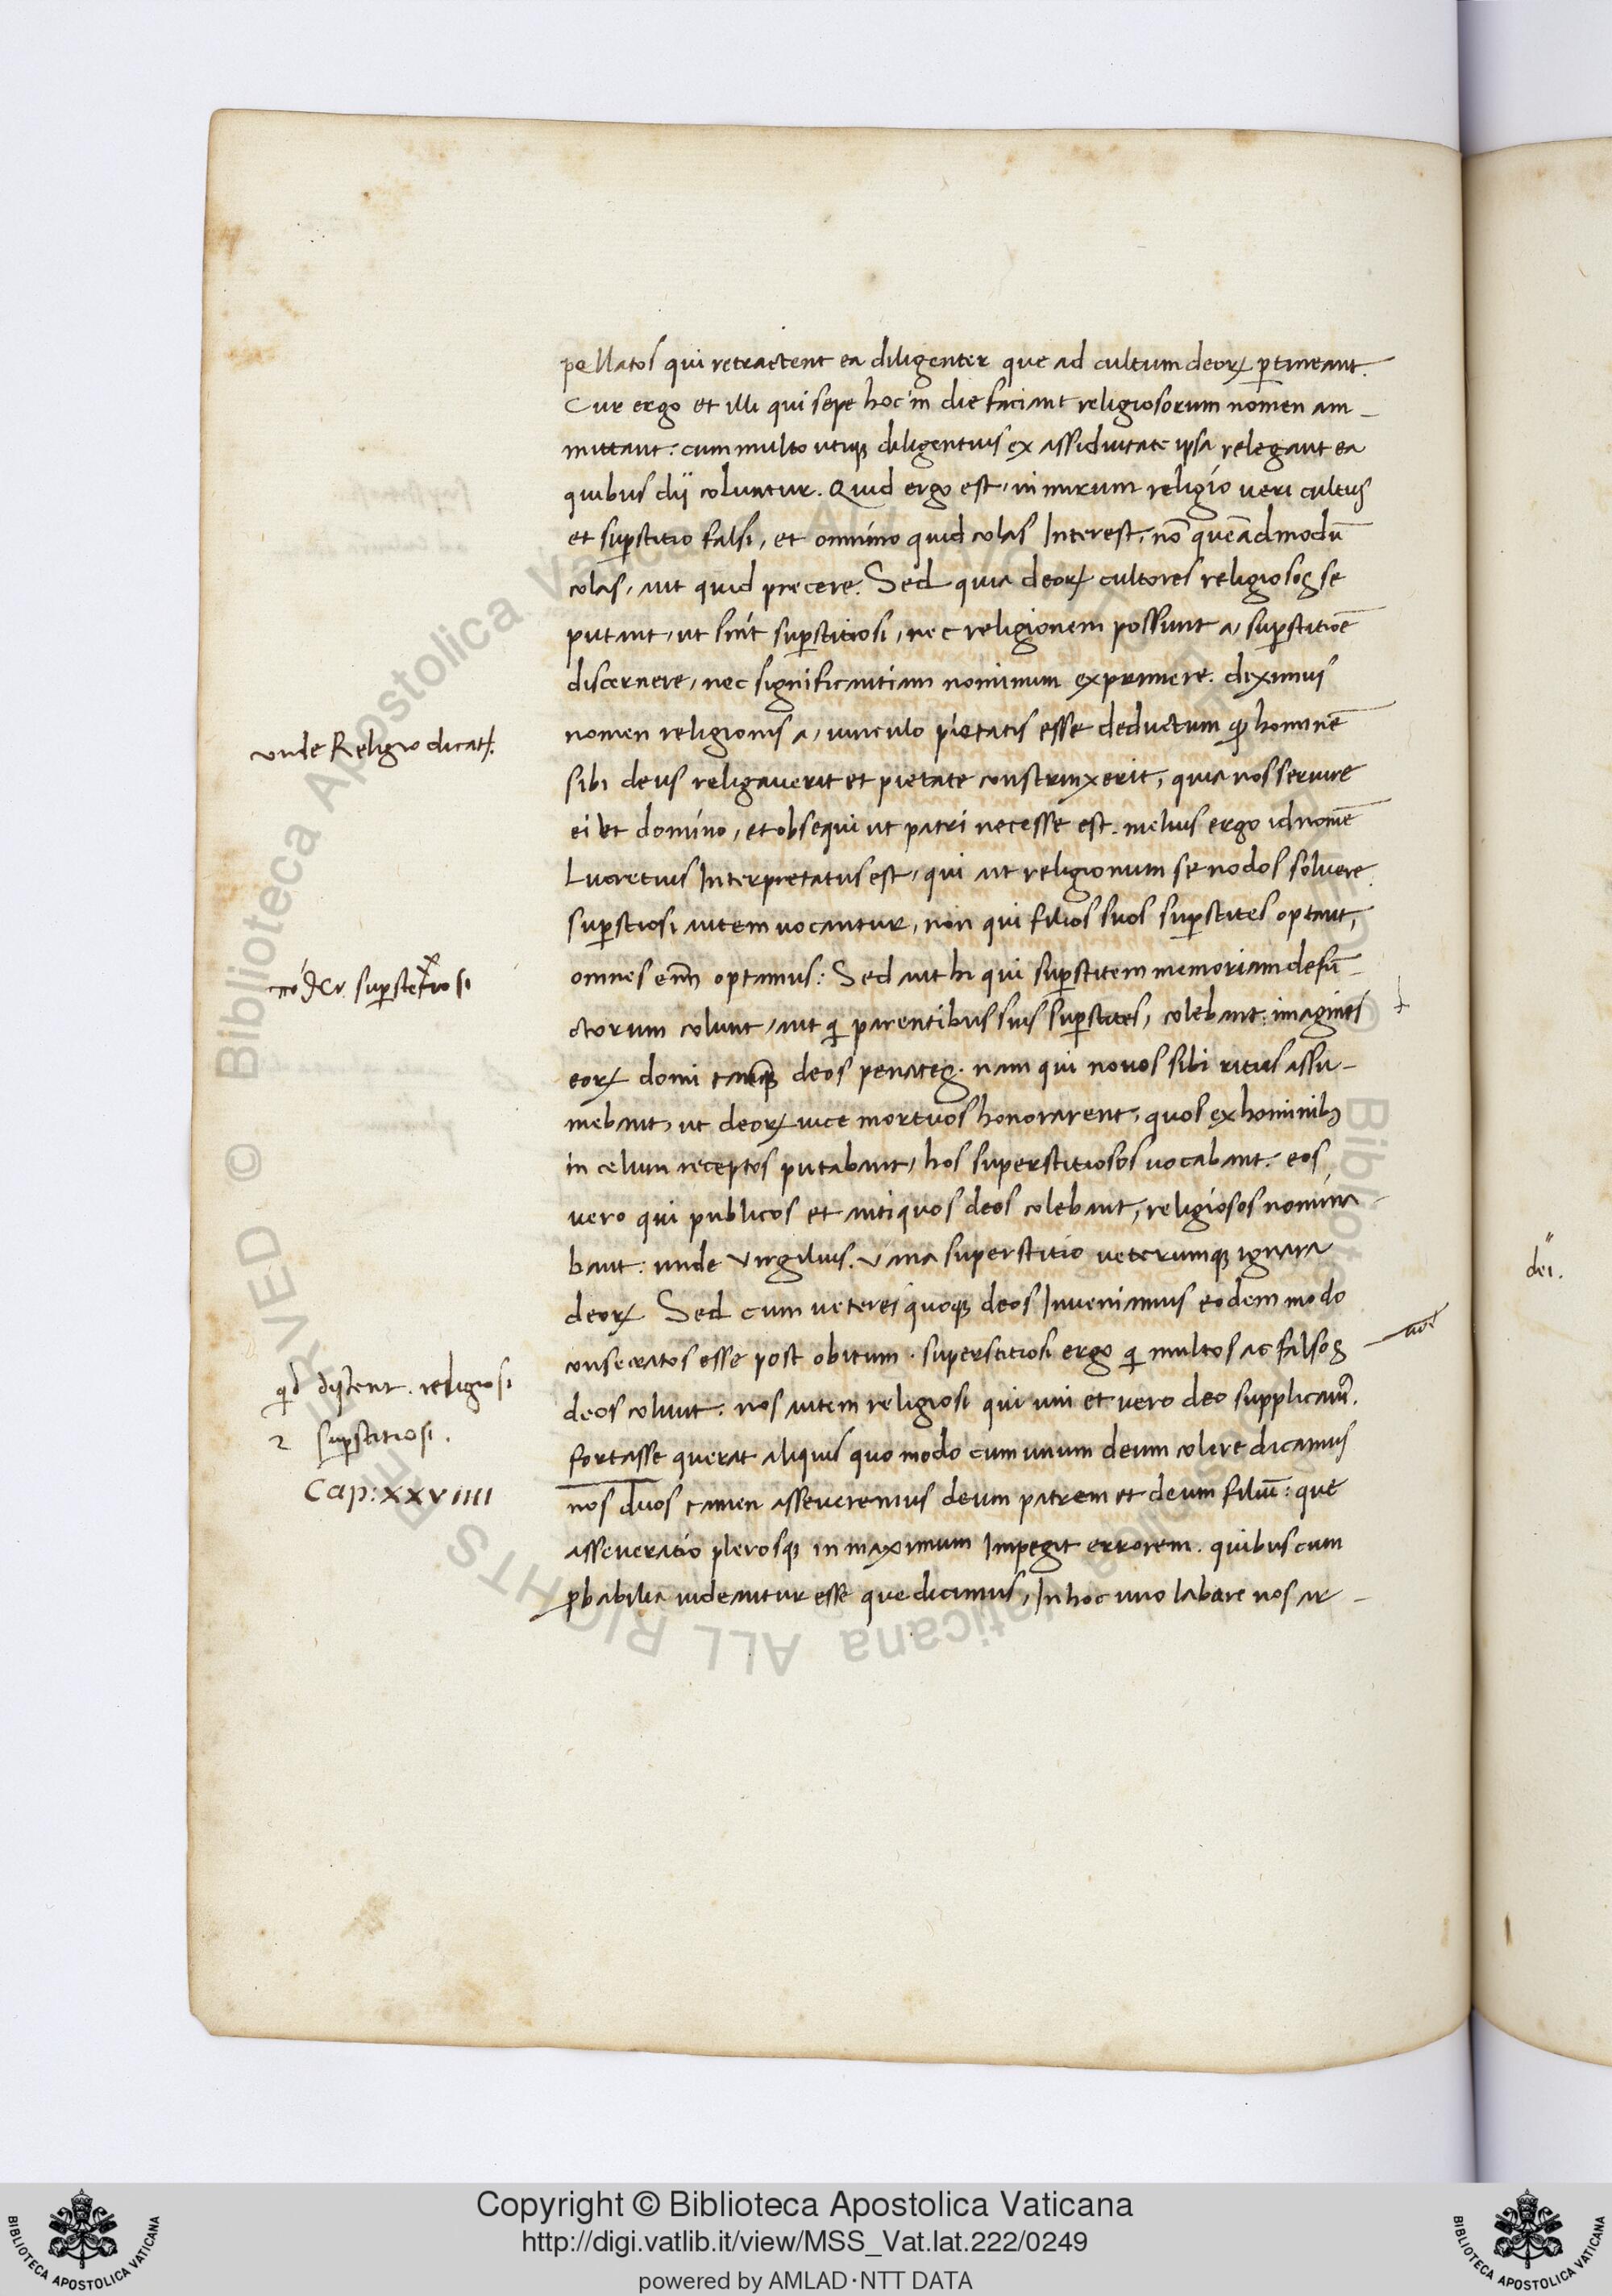 pellatos qui retractent ea diligenter que ad cultum deoꝝ ꝑtineant.
Cur ergo et illi qui sepe hoc in die faciant religiosorum nomen am-
mittant: cum multo utiqꝫ diligentius ex assiduitate ipsa relegant ea
quibus dij coluntur. Quid ergo est, nimirum religio veri cultus
et suꝑstitio falsi, et omnino quid colas Interest, nō queādmodū
colas, aut quid precere. Sed quia deoꝝ cultores religiosos se
putant, ut sint suꝑstitiosi, nec religionem possunt a, suꝑstitiōe
discernere, nec significantiam nominum exprimere. diximus
nomen religionis a, vinculo pietatis esse deductum ꝙ hominē
sibi deus religaverit et pietate constrinxerit, quia nos servire
ei ut domino, et obsequi ut patri necesse est. melius ergo id nomē
Lucretius Interpretatus est, qui ait religionum se nodos solvere.
suꝑstiosi autem vocantur, non qui filios suos suꝑstites optant,
omnes enim optamus: Sed aut hi qui suꝑstitem memoriam defū-
ctorum colunt, aut qi parentibus suis suꝑstites, colebant: imagines
eoꝝ domi tanqꝫ deos penates. nam qui novos sibi ritus assu-
mebant, ut deoꝝ vice mortuos honorarent, quos ex hominibꝫ
in celum receptos putabant, hos superstitiosos vocabant. eos
vero qui publicos et antiquos deos colebant, religiosos nomina-
bant: unde Virgilius. Vana superstitio veterumqꝫ ignara
deoꝝ Sed cum veteres quoqꝫ deos Inveniamus eodem modo
consecratos esse post obitum. superstitiosi ergo qi multos ac falsos
deos colunt: nos autem religiosi qui uni et vero deo supplicam̃.
fortasse querat aliquis quo modo cum unum deum colere dicamus
nos duos tamen asseveremus deum patrem et deum filiū: que
asseveratio plerosqꝫ in maximum Impegit errorem. quibus cum
ꝓbabilia videantur esse que dicimus, In hoc uno labare nos ar-
unde Religio dicatꝝ.
suꝑstitiosi
qd distent. religiosi
⁊ suꝑstitiosi.
Cap: XXVIIII
dei.
Copyright © Biblioteca Apostolica Vaticana
http://digi.vatlib.it/view/MSS_Vat.lat.222/0249
powered by AMLAD·NTT DATA
BIBLIOTECA APOSTOLICA VATICANA
BIBLIOTECA APOSTOLICA VATICANA